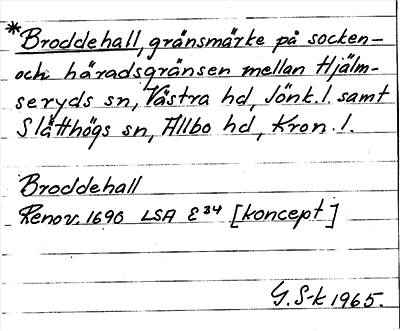 *Broddehall, gränsmärke på socken-
och häradsgränsen mellan Hjälm-
seryds sn, Västra hd, Jönk. l. samt
Slätthögs sn, Allbo hd, Kron. l.
Broddehall
Renov. 1690 LSA E34 [koncept]
G. S-k 1965.